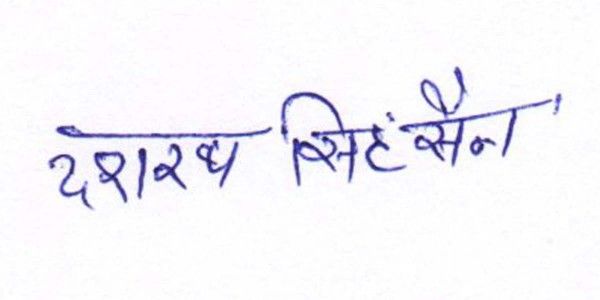 दशरथ सिहं सैन